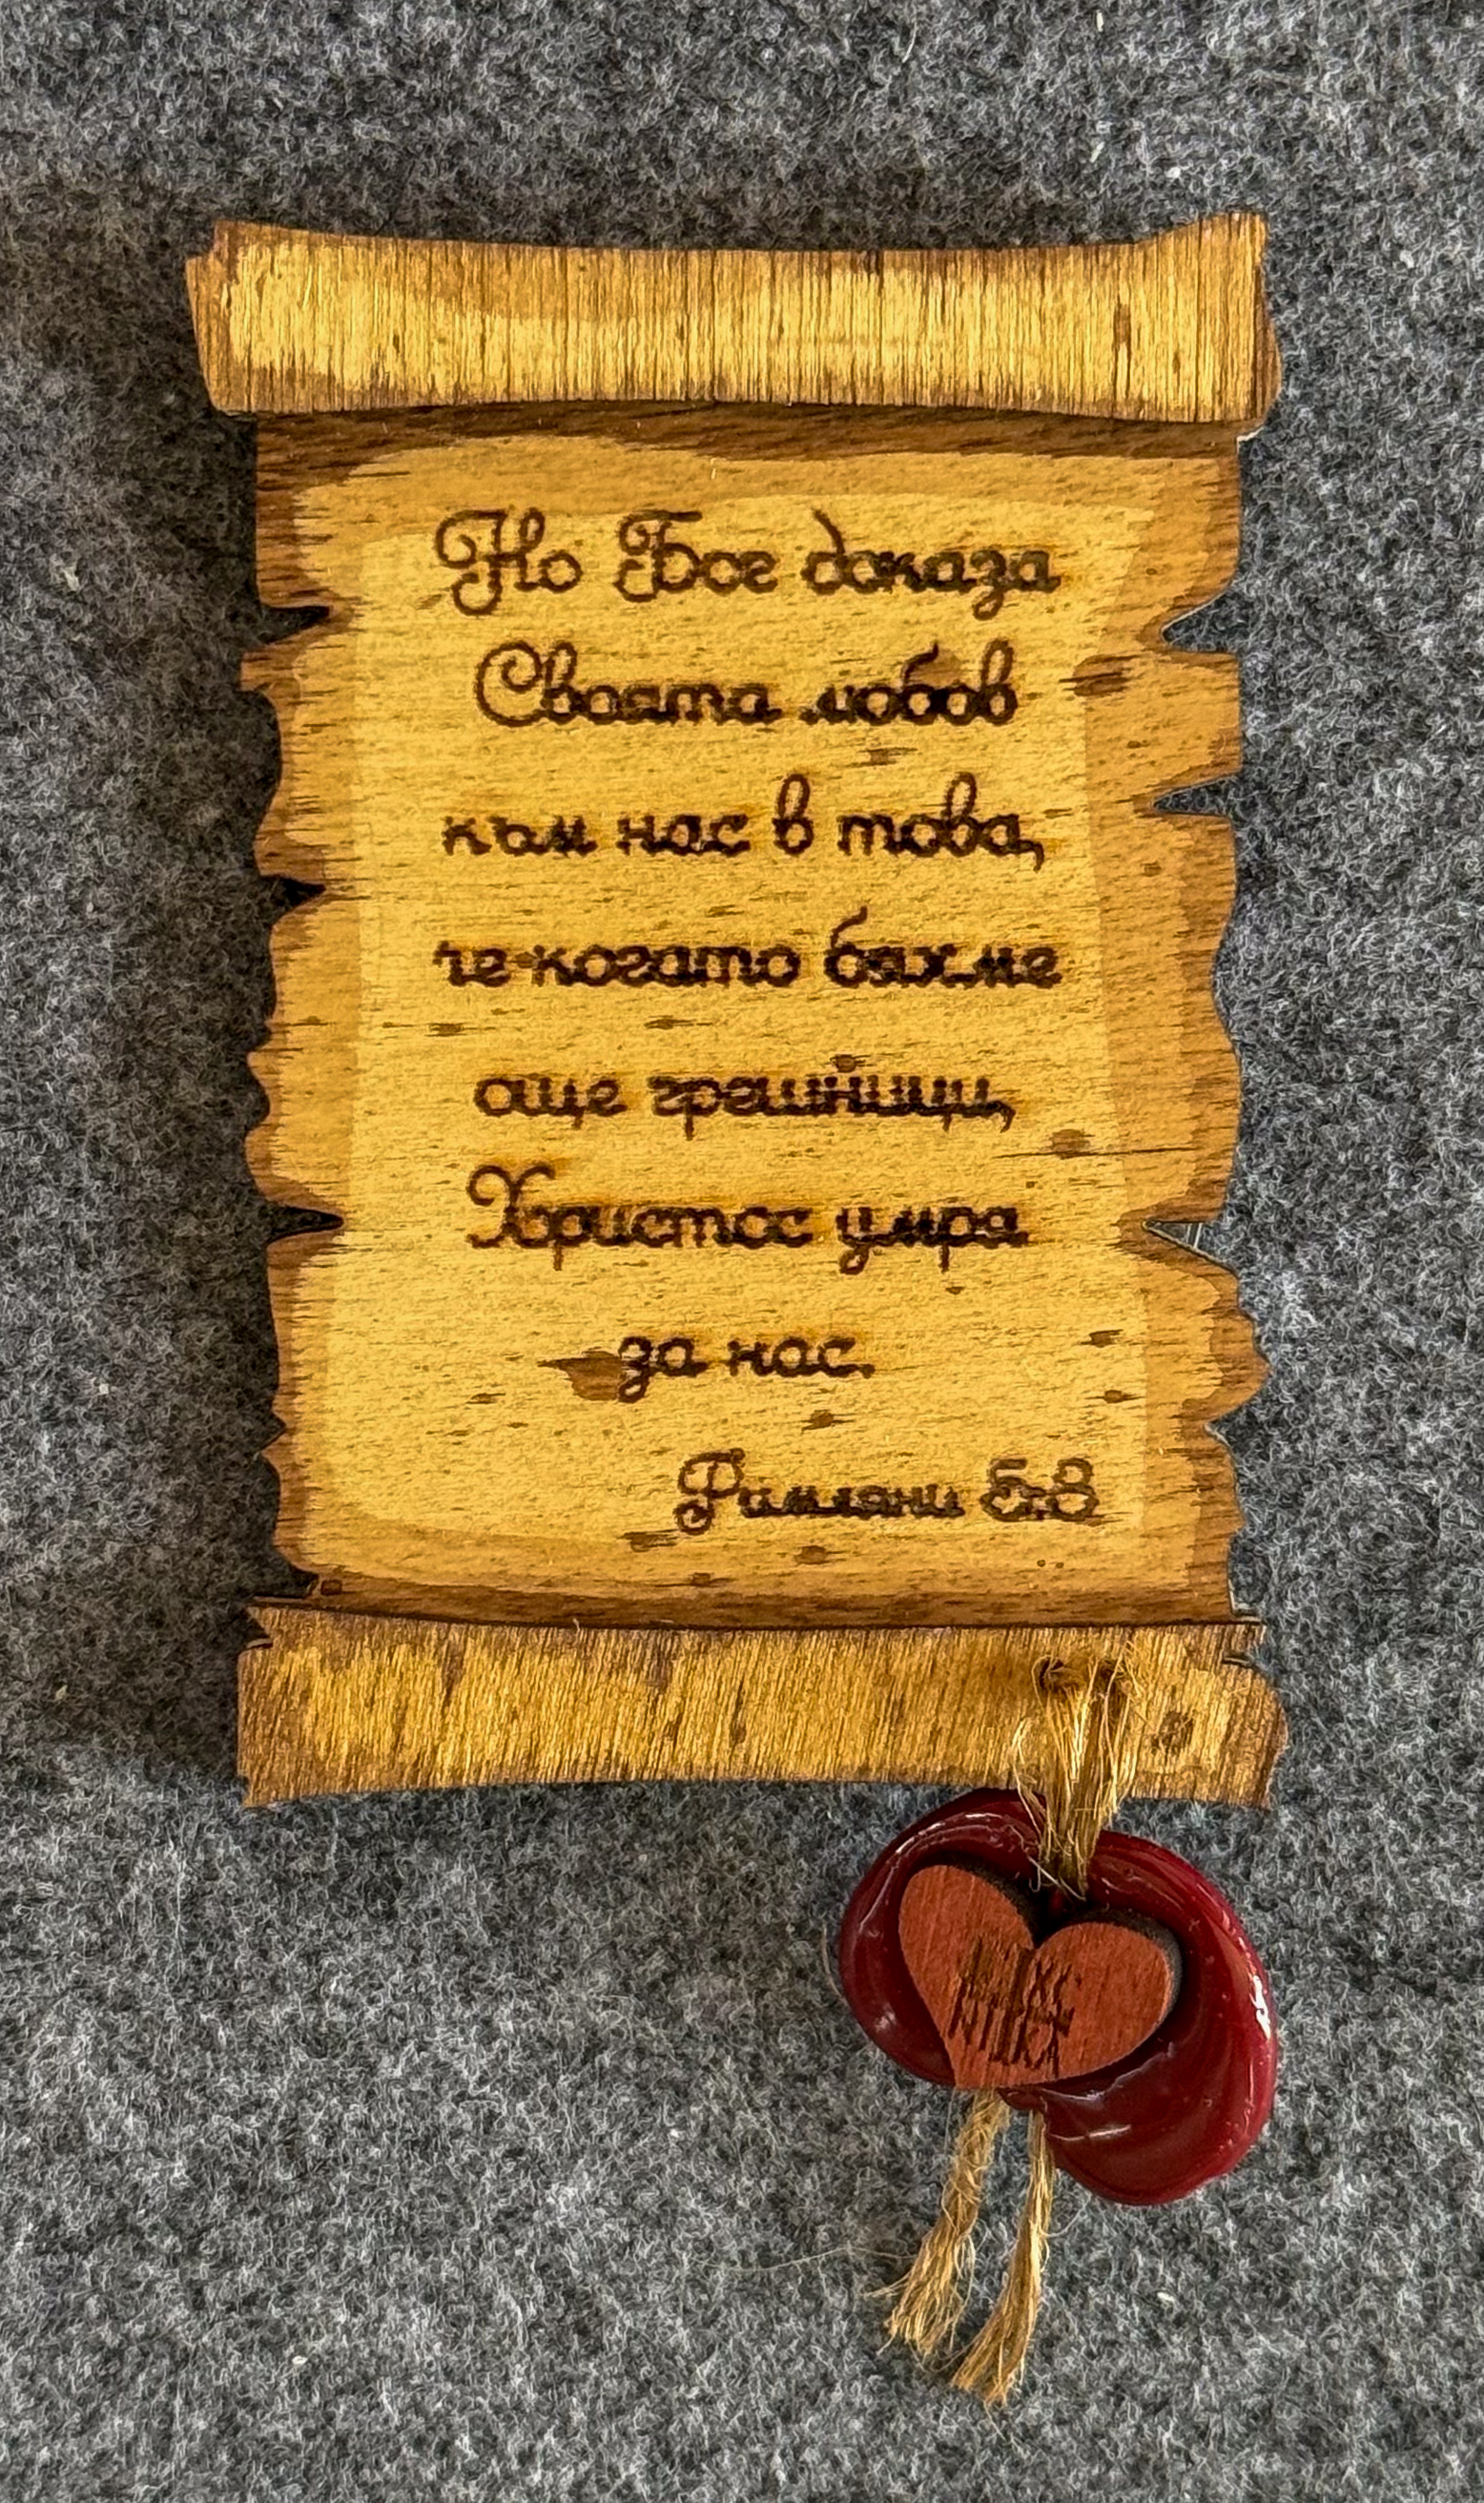 Но Бог доказа
Своята любов
към нас в това,
че когато бяхме
още грешници,
Христос умря
за нас.
Римляни 5:8
IC XC
NIKA